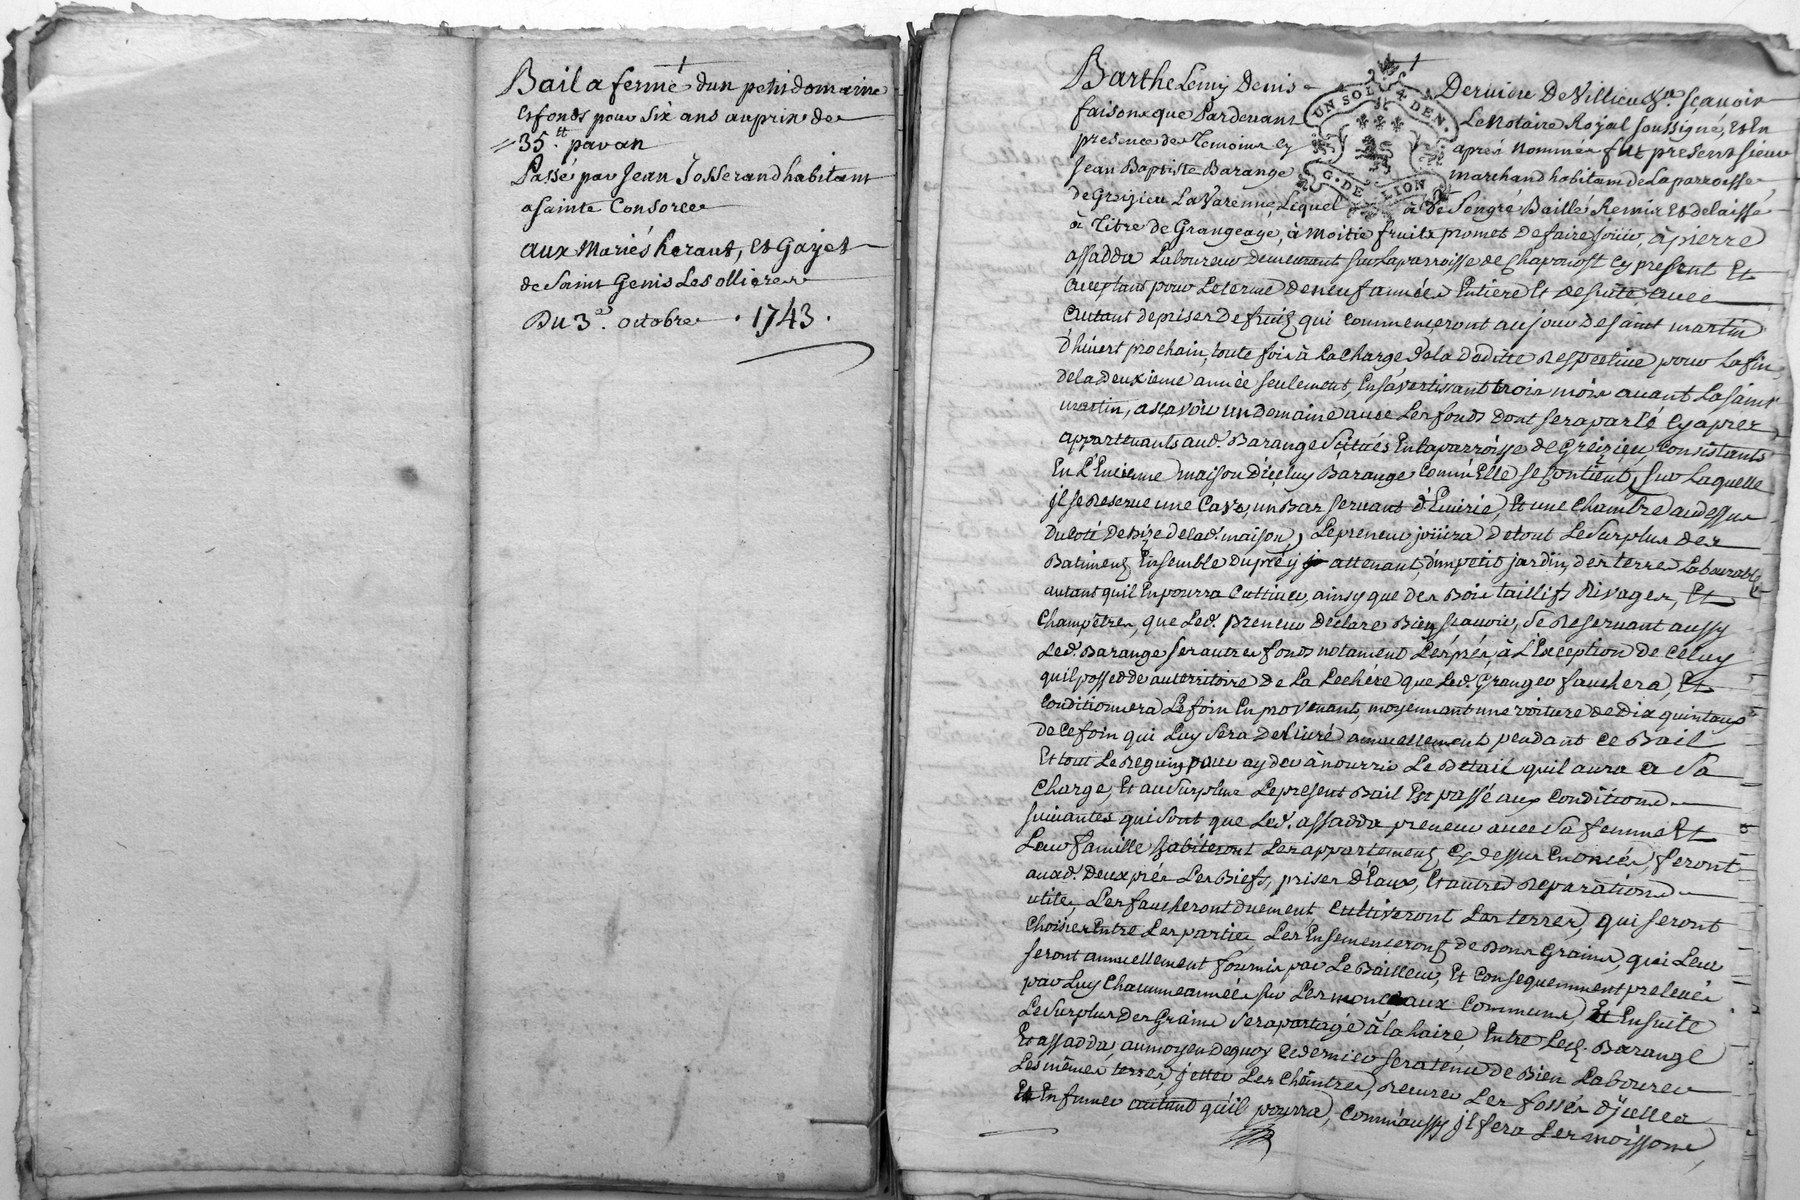 Bail a ferme d'un petit domaine
et fonds pour six ans au prix de
35.tt par an
Passé par Jean Josserand habitant
a sainte Consorce
aux Mariés herant, et Gayet
de Saint Genis Les ollieres
Du 3e. octobre . 1743 .
Barthelemy Denis Derviere De Villieu Xr. Scavoir
faisons que Pardevant Le Notaire Royal soussigné, Et En
presence des Temoins Cy après nommés fut present sieur
Jean Baptiste Barange marchand habitant de La parroisse
de Greizieu La Varenne, Lequel a de son gré Baillé Remis Et delaissé
à Titre de Grangeage, à moitié fruits promet De faire Joüir, à pierre
assadda Laboureur Demeurant sur La parroisse de Chaponost Cy présent Et
acceptant pour Le terme De neuf années Entiere Et De suite avec
autant de prises De fruits, qui Commenceront au jour De saint martin
d'hivert prochain, toute fois à La charge De la deditte Respective pour La fin
de la deuxieme année seulement, En s'avertissant trois mois avant La saint
martin, ascavoir un Domaine avec Les fonds dont sera parlé Cy après
appartenants aud. Barange Scitués En la parroisse de Greizieu, Consistants
En L'Encienne maison D'iceluy Barange Comm'Elle se Contient, sur Laquelle
il se Reserve une Cave, un Bas servant d'Ecurie, Et une Chambre au dessus
Du Coté De Bize de lad. maison, Le preneur joüira de tout Le Surplus des
Batiments Ensemble Du pré y attenant, d'un petit jardin, des terres Labourables
autant qu'il En pourra Cultiver, ainsy que des Bois taillifs Rivages, Et
Champêtres, que Led. preneur declare Bien scavoir, Se Reservant aussy
Led. Barange ses autres fonds notament Les prés, à L'Exception de Celuy
qu'il possedde au territoire De La Lechère que Led. Granger fauchera, Et
Conditionnera Le foin En provenant, moyennant une voiture de Dix quintaux
de Ce foin qui Luy Sera Delivré annuellement pendant Ce Bail
Et tout Le Reguin pour ayder à nourrir Le Betail qu'il aura a Sa
Charge, Et au Surplus Le present Bail Est passé aux Conditions
suivantes qui Sont que Led. assadda preneur avec Sa femme Et
Leur famille habiteront Les appartements Cy dessus Enoncés, feront
auxd. deux prés Les Biefs, prises D'Eaux, Et autres Reparations
utiles, Les faucheront duement Cultiveront Les terres, qui seront
Choisies Entre Les parties, Les Ensemenceront de Bons Grains, qui Leur
seront annuellement fournis par Le Bailleur, Et Consequemment prelevés
par Luy Chacunne année sur Les monceaux Communs, Et Ensuite
Le Surplus Des Grains Sera partagé à la haire, Entre Led. Barange
Et assadda, au moyen Dequoy Ce dernier sera tenu de Bien Labourer
Les mêmes terres, jetter Les Chaintres, recurer Les fossés d'ycelles
Et En fumer autant qu'il pourra, Comm'aussy il fera Les moissons
UN SOL 4 DEN.
G. DE LION